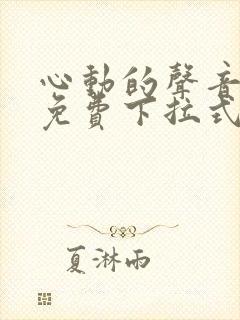 心動的聲音
免費下拉式
夏淋雨